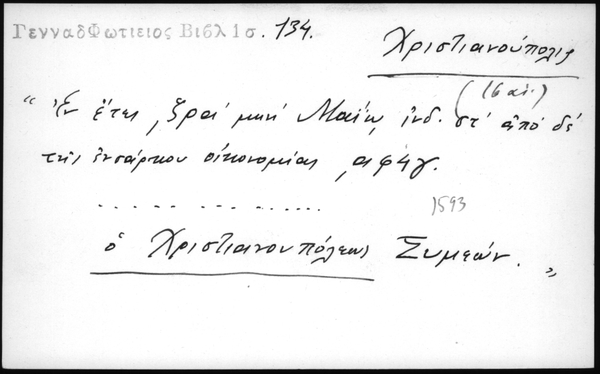 ΓενναδΦωτιειος Βιβλ 1σ. 134.
Χριστιανούπολις
(16 αἰ.)
" Ἐν ἔτει ͵ζραʹ μηνὶ Μαΐῳ, ἰνδ. στʹ ἀπὸ δὲ
τῆς ἐνσάρκου οἰκονομίας ͵αφϟγ.
..... ... ... ........ 1593
ὁ Χριστιανουπόλεως Συμεών. „